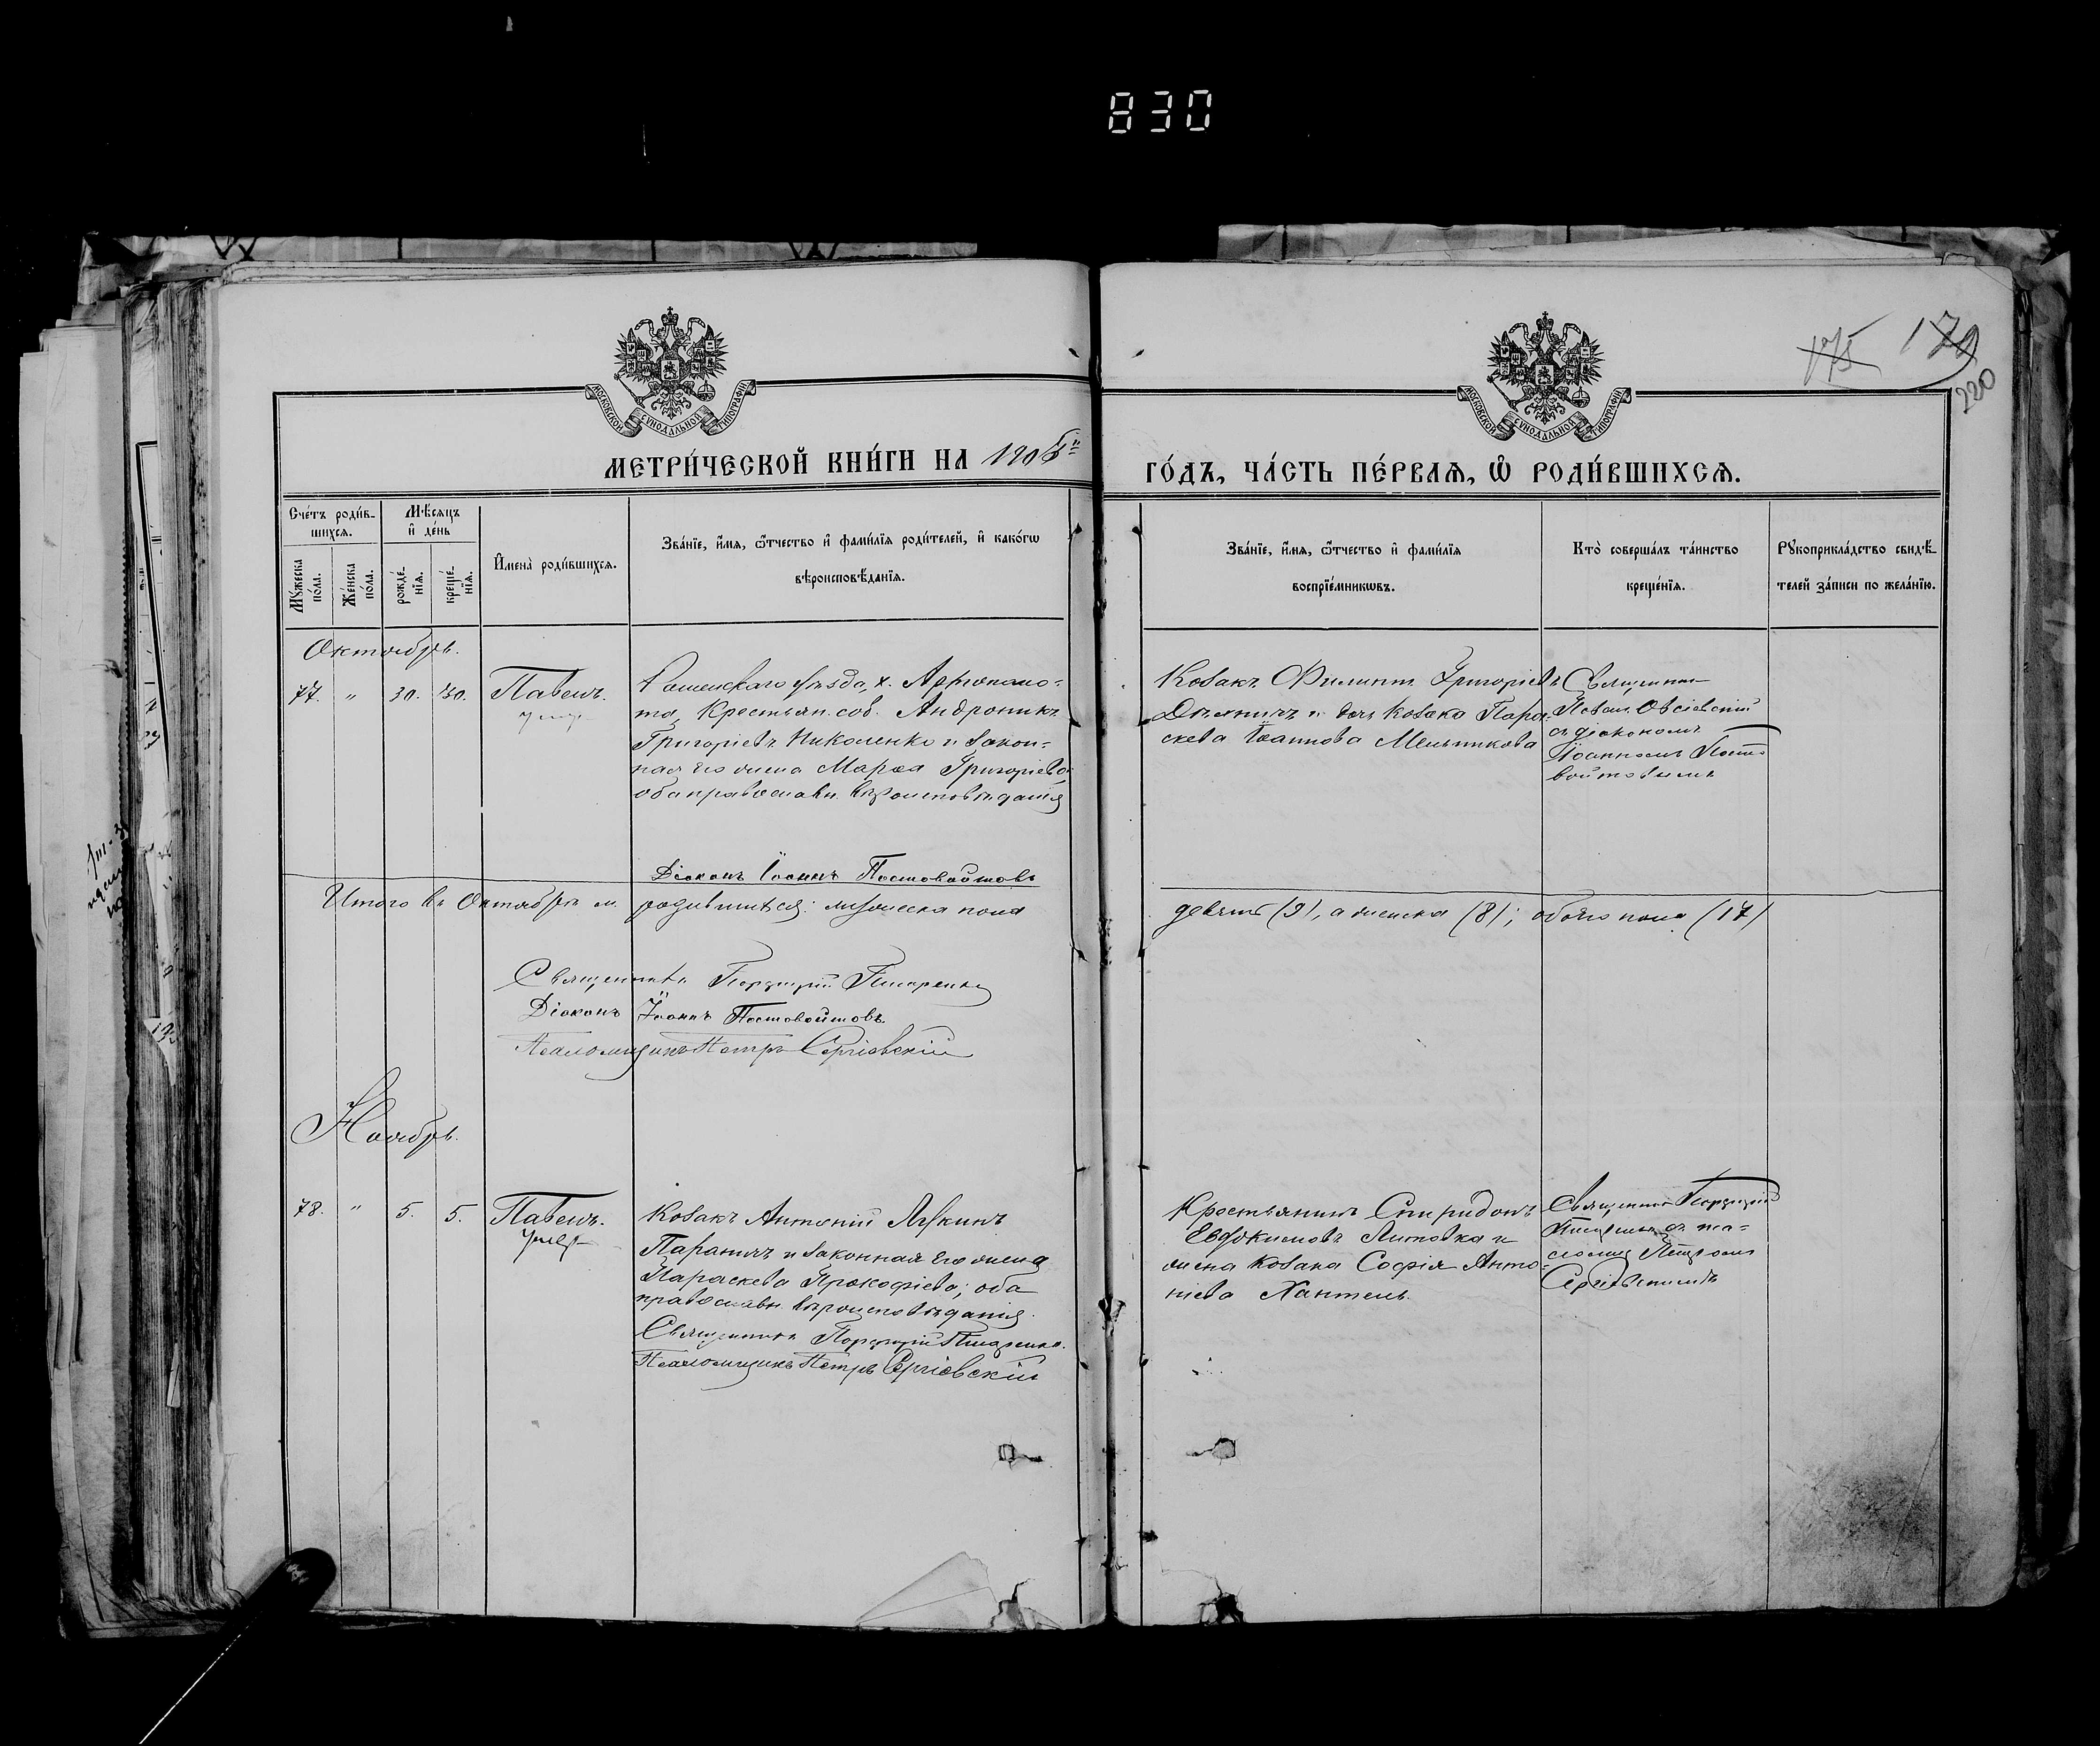 830
175 179
220
МОСКОВСКОЙ СѴНОДАЛЬНОЙ ТИПОГРАФІИ
МОСКОВСКОЙ СѴНОДАЛЬНОЙ ТИПОГРАФІИ
МЕТРИ́ЧЕСКОЙ КНИ́ГИ НА 1905 ГО́ДЪ, ЧА́СТЬ ПЕ́РВАѦ, Ѡ҆ РОДИ́ВШИХСѦ.
Сче́тъ роди́в-
шихсѧ.
Мꙋ́жеска по́ла.
Же́нска по́ла.
Мѣ́сѧцъ и҆ де́нь
рожде́-
нїѧ.
креще́-
нїѧ.
И҆мена̀ роди́вшихсѧ.
Зва́нїе, и҆́мѧ, ѻ҆́тчество и҆ фами́лїѧ роди́телей, и҆ како́гѡ
вѣроисповѣ́данїѧ.
Зва́нїе, и҆́мѧ, ѻ҆́тчество и҆ фами́лїѧ
воспрїе́мникѡвъ.
Кто̀ соверша́лъ та́инство
креще́нїѧ.
Рꙋкоприкла́дство свидѣ́-
телей за́писи по жела́нїю.
Октябрь.
77. " 30. 30. Павелъ.
умер
Роменскаго уѣзда, х.
та, Крестьян. соб. Андроникъ
Григорьевъ Николенко и закон-
ная его жена Марѳа Григорьева
оба православн. вѣроисповѣданія
Козакъ Филиппъ Григорьевъ
и дочь козака Пара-
скева Іоаннова Мельникова
Священникъ
Павелъ Овсіевскій
съ діакономъ
Іоанномъ Посто-
войтовымъ
Діаконъ Іоаннъ Постовойтовъ
Итого въ Октябрѣ м. родившихся: мужеска пола девять (9), а женска (8); обоего пола (17)
Священникъ Порфирій Писаренко
Діаконъ Іоаннъ Постовойтовъ.
Псаломщикъ Петръ Сергіевскій
Ноябрь.
78. " 5. 5. Павелъ.
умер
Козакъ Антоній Лукинъ
Параничъ и законная его жена
Параскева Прокофіева; оба
православн. вѣроисповѣданія.
Священникъ Порфирій Писаренко.
Псаломщикъ Петръ Сергіевскій
Крестьянинъ Спиридонъ
Евдокимовъ Литовка и
жена козака Софія Анто-
ніева Хантель.
Священникъ Порфирій
Писаренко съ пса-
ломщ. Петромъ
Сергіевскимъ